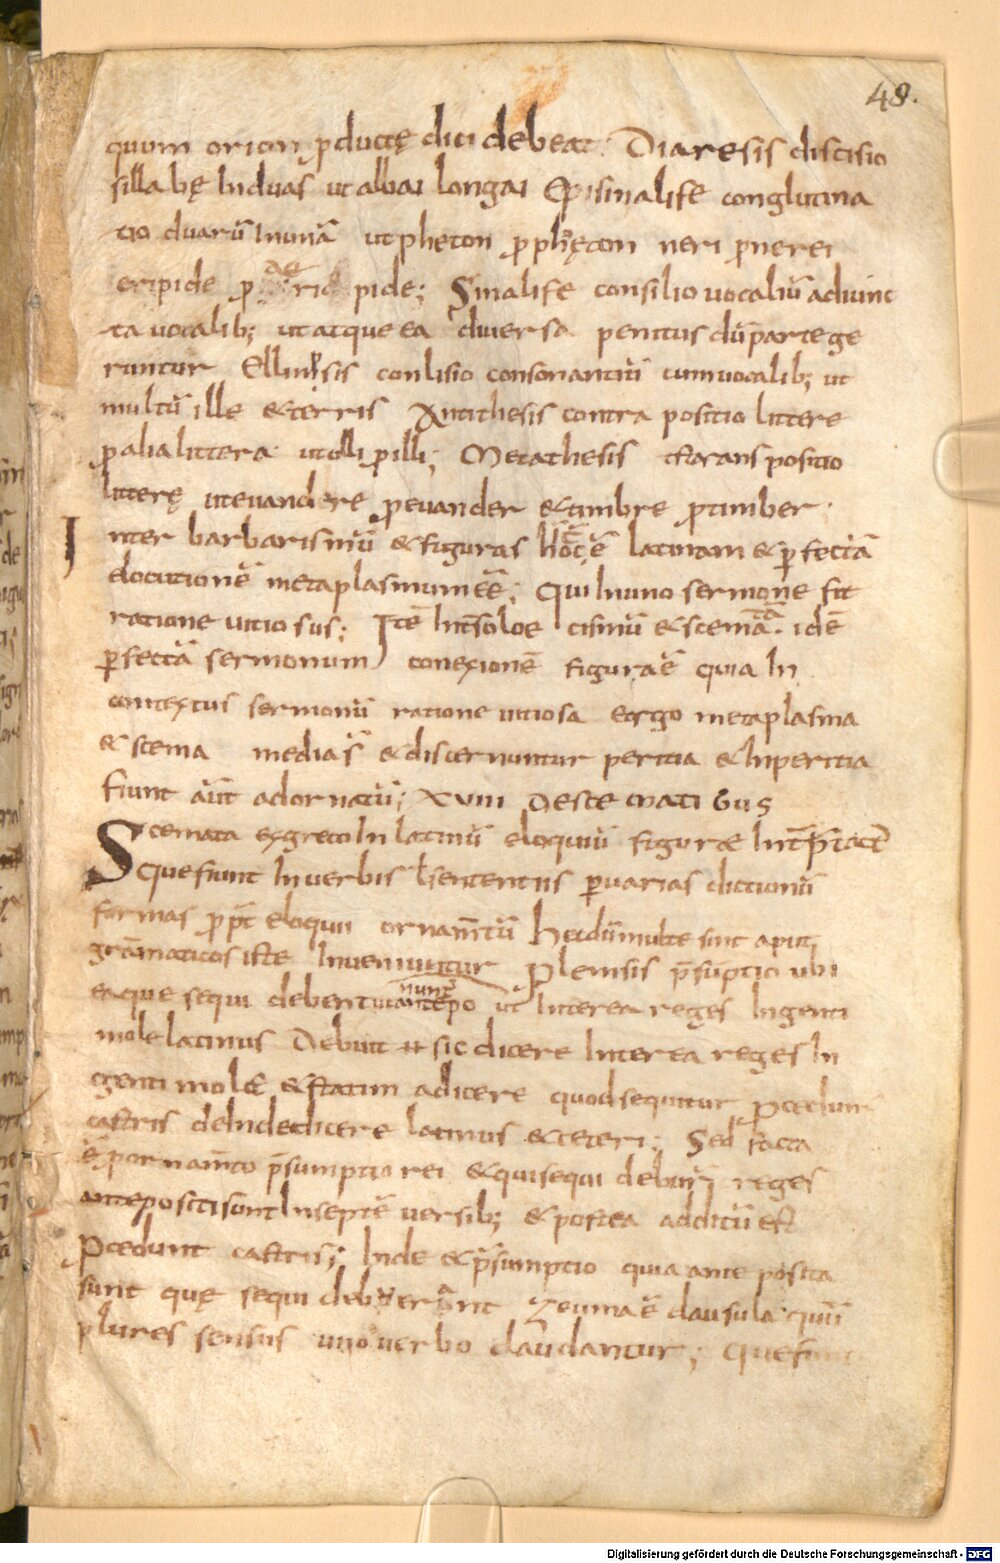 48.
quom orion ꝓductę dici debeat. Diaresis discisio
sillabę Induas ut albai longai Episinalife conglutina
tio duarū Inunā ut phęton ꝓ phęton neri ꝓ nerei
eripide ꝓ pide; Sinalife consilio vocaliū adiunc
ta vocalib; ut atque ea diversa penitus dū parte ge
runtur Ellinpsis conlisio consonantiū cum vocalib; ut
multū ille & terris Antithesis contra positio littere
ꝓ alia littera ut olli ꝓ illi; Metathesis trans positio
litterę ut evandre ꝓ evander & timbre ꝓ timber.
Inter barbarismū & figuras hoc ē latinam & ꝑfectā
elocutionē metaplasmum eē; Qui Inuno sermone fit
ratione vitiosus; Itē Int soloe cismū & scemata. idē
ꝑfectā sermonum conexionē figura ē quia In
contextus sermonū ratione vitiosa ergo metaplasma
& scema media s̄ & discernuntur peritia & Inperitia
fiunt aūt ad ornatū; XVIII DE SCEMATIBUS
Scemata ex greco In latinū eloquiū figuræ Int̄p̄tact̄
que fiunt In verbis ł sententiis ꝑ varias dictionū
formas ꝓpt̄ eloquii ornam̄tū Hec dū multe sint aput
gram̄aticos iste Inveniuntur Plemsis p̄sūptio ubi
ea que sequi debent antepo nunt̄ ut Interea reges Ingenti
mole latinus Debuit sic dicere Interea reges In
genti mole & statim adicere quod sequitur ꝓcedunt
castris deInde dicere latinus & ceteri; Sed facta
ē ꝓ ornam̄to p̄sumptio rei & qui sequi debunt reges
antepositi sunt In septē versib; & postea additū est
Pcedunt castris; Inde & p̄sumptio quia ante posita
sunt quę sequi debuerant Zeuma ē clausula quū
plures sensus uno verbo claudantur; Que fiunt
Digitalisierung gefördert durch die Deutsche Forschungsgemeinschaft - DFG